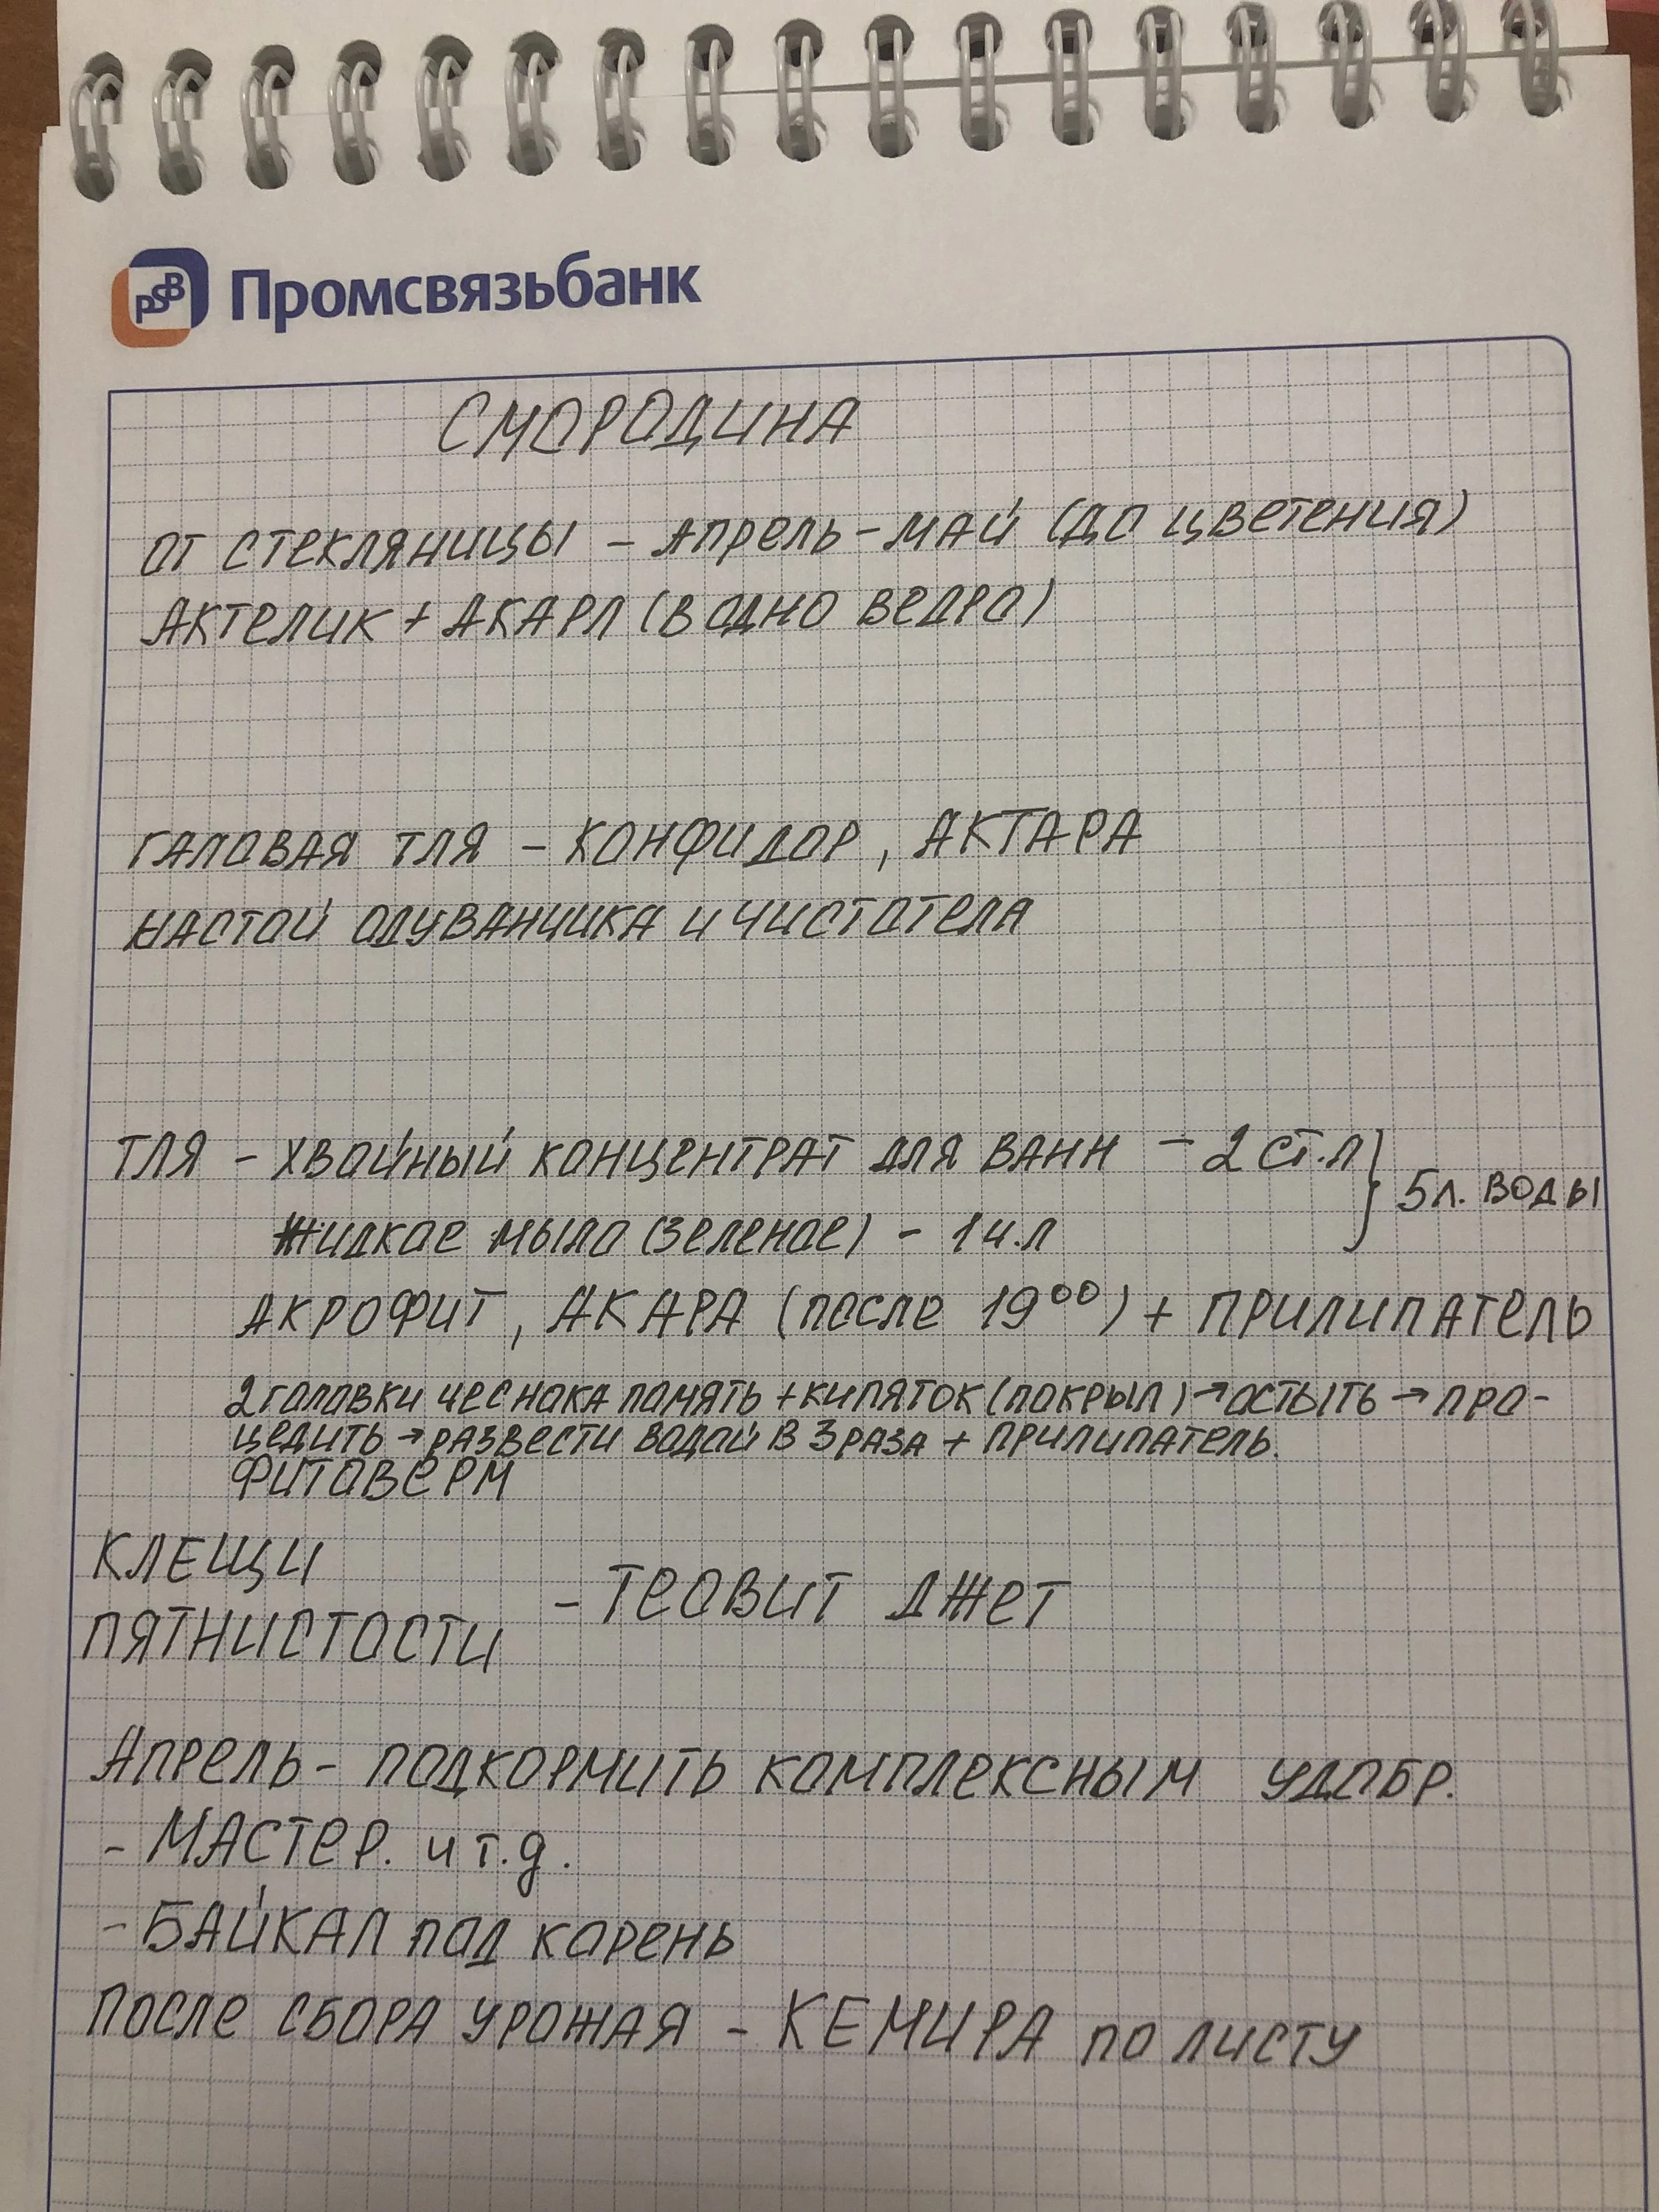 PSB Промсвязьбанк
СМОРОДИНА
ОТ СТЕКЛЯНИЦЫ - АПРЕЛЬ - МАЙ (ДО ЦВЕТЕНИЯ)
АКТЕЛИК + АКАРЛ (В ОДНО ВЕДРО)
ГАЛОВАЯ ТЛЯ - КОНФИДОР, АКТАРА
НАСТОЙ ОДУВАНЧИКА И ЧИСТОТЕЛА
ТЛЯ - ХВОЙНЫЙ КОНЦЕНТРАТ ДЛЯ ВАНН - 2 СТ.Л } 5Л. ВОДЫ
ЖИДКОЕ МЫЛО (ЗЕЛЕНОЕ) - 1 Ч.Л
АКРОФИТ, АКАРА (ПОСЛЕ 19⁰⁰) + ПРИЛИПАТЕЛЬ
2 ГОЛОВКИ ЧЕСНОКА ПОМЯТЬ + КИПЯТОК (ПОКРЫЛ) → ОСТЫТЬ → ПРО-
ЦЕДИТЬ → РАЗВЕСТИ ВОДОЙ В 3 РАЗА + ПРИЛИПАТЕЛЬ.
ФИТОВЕРМ
КЛЕЩИ
ПЯТНИСТОСТИ - ТЕОВИТ ДЖЕТ
АПРЕЛЬ - ПОДКОРМИТЬ КОМПЛЕКСНЫМ УДОБР.
- МАСТЕР. И Т.Д.
- БАЙКАЛ ПОД КОРЕНЬ
ПОСЛЕ СБОРА УРОЖАЯ - КЕМИРА ПО ЛИСТУ